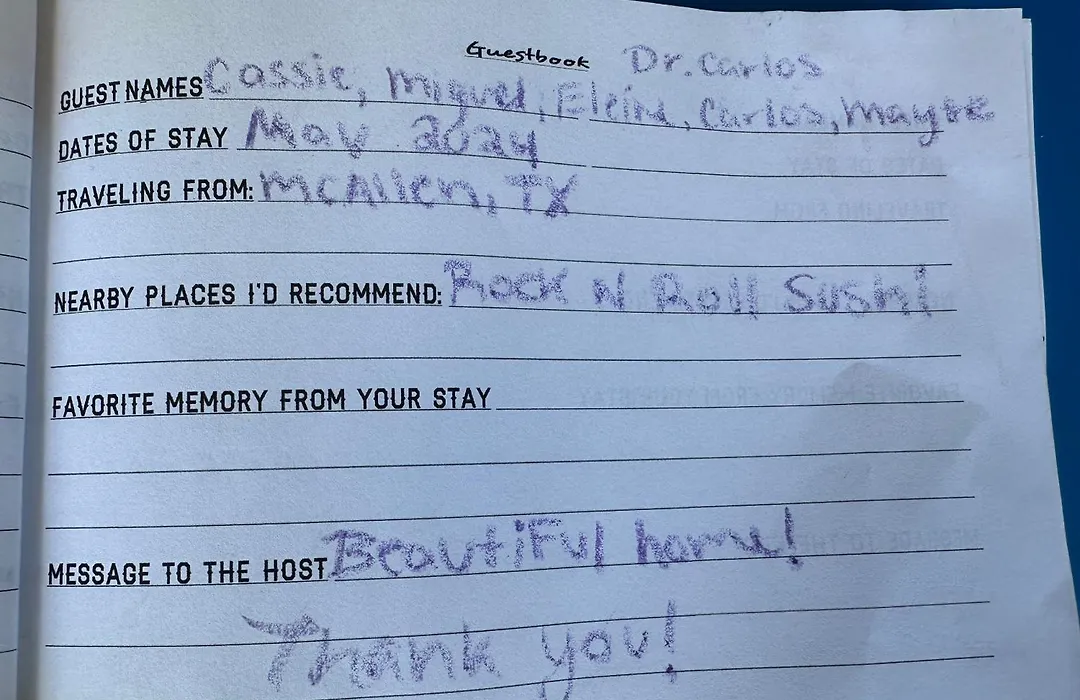 Guestbook
Dr. Carlos
GUEST NAMES Cassie, Miguel, Elein, Carlos, Mayte
DATES OF STAY May 2024
TRAVELING FROM: McAllen, TX
NEARBY PLACES I'D RECOMMEND: Rock N Roll Sushi
FAVORITE MEMORY FROM YOUR STAY
MESSAGE TO THE HOST Beautiful home!
Thank you!